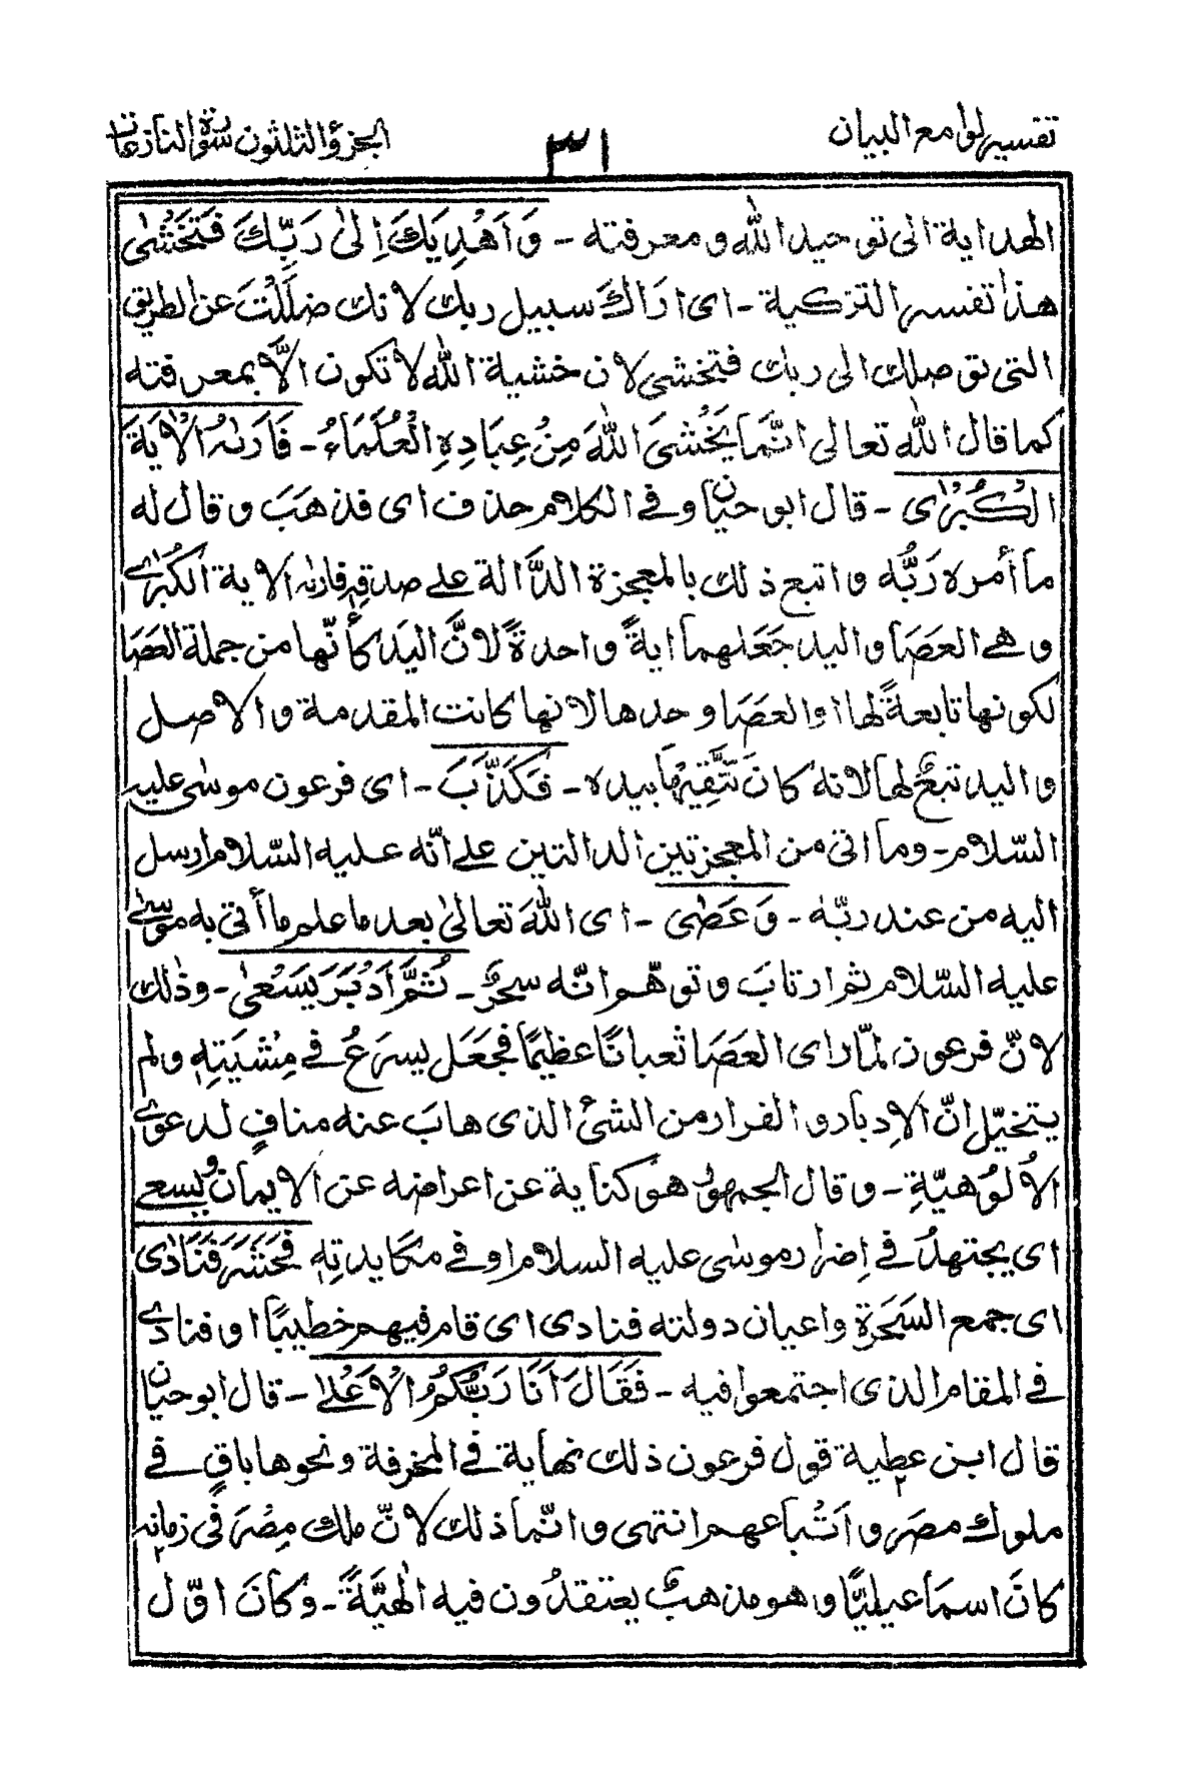 تفسير لوامع البيان
٣١
الجزؤ الثلثون سورة النازعات
الهداية الى توحيد الله ومعرفته - وَاَهْدِيَكَ اِلىٰ رَبِّكَ فَتَخْشٰى
هذا تفسير التزكية - اى ارَاكَ سبيل ربك لانك ضَلَلْتَ عن الطريق
التى توصلك الى ربك فتخشى لان خشية الله لا تكون الَّا بمعرفته
كما قال الله تعالى انَّمَا يَخْشَى اللهَ مِنْ عِبَادِهِ الْعُلَمَاءُ - فَاَرٰىهُ الْاٰيَةَ
الْكُبْرٰى - قال ابو حيان وفى الكلام حذف اى فذهَبَ وقال له
ما أمره رَبُّه واتبع ذلك بالمعجزة الدَّالة على صدقهٖ فاراٮه الاية الكُبْرٰى
وهى العَصَا واليد جَعَلهما ايةً واحدةً لانَّ اليَدَ كأنّها من جملة العَصَا
لكونها تابعةً لها او العَصَا وحدها لانها كانت المقدمة والاصل
واليد تبعٌ لها لانه كانَ تَتَّقِيْهَا بيده - فَكَذَّبَ - اى فرعون موسى عليه
السّلام - وما اتى من المعجزتين الدالتين على انّه عليه السّلام ارسل
اليه من عند ربّه - وَعَصٰى - اى اللهَ تعالىٰ بعد ما علم ما أتى به موسٰى
عليه السّلام ثم ارتابَ وتوهّم انّه سحرٌ - ثُمَّ اَدْبَرَ يَسْعٰى - وذٰلك
لانّ فرعون لمّا راى العَصَا ثعبانًا عظيمًا فجَعَل يسرَعُ فى مِشْيَتِهٖ ولم
يتخيّل انّ الادبار والفرار من الشئ الذى هابَ عنه منافٍ لدعوى
الأُلوُهيّةِ - وقال الجمهور هو كناية عن اعراضه عن الايمان ويسعى
اى يجتهدُ فى اِضرار موسى عليه السلام او فى مكايدتِهٖ فَحَشَرَ فَنَادٰى
اى جمع السَحَرة واعيان دولته فنادى اى قام فيهم خطيبًا او فنادى
فى المقام الذى اجتمعوا فيه - فَقَالَ اَنَا رَبُّكُمُ الْاَعْلٰا - قال ابو حيان
قال ابن عطية قول فرعون ذلك نهاية فى المخرفة ونحوها باقٍ فى
ملوك مصر واَتْباعهم انتهى وانّما ذلك لانّ ملك مِصْرَ فى زمانه
كانَ اسمَاعيليًّا وهو مذهبٌ يعتقدُون فيه الٰهيَّةً - وكانَ اوّل